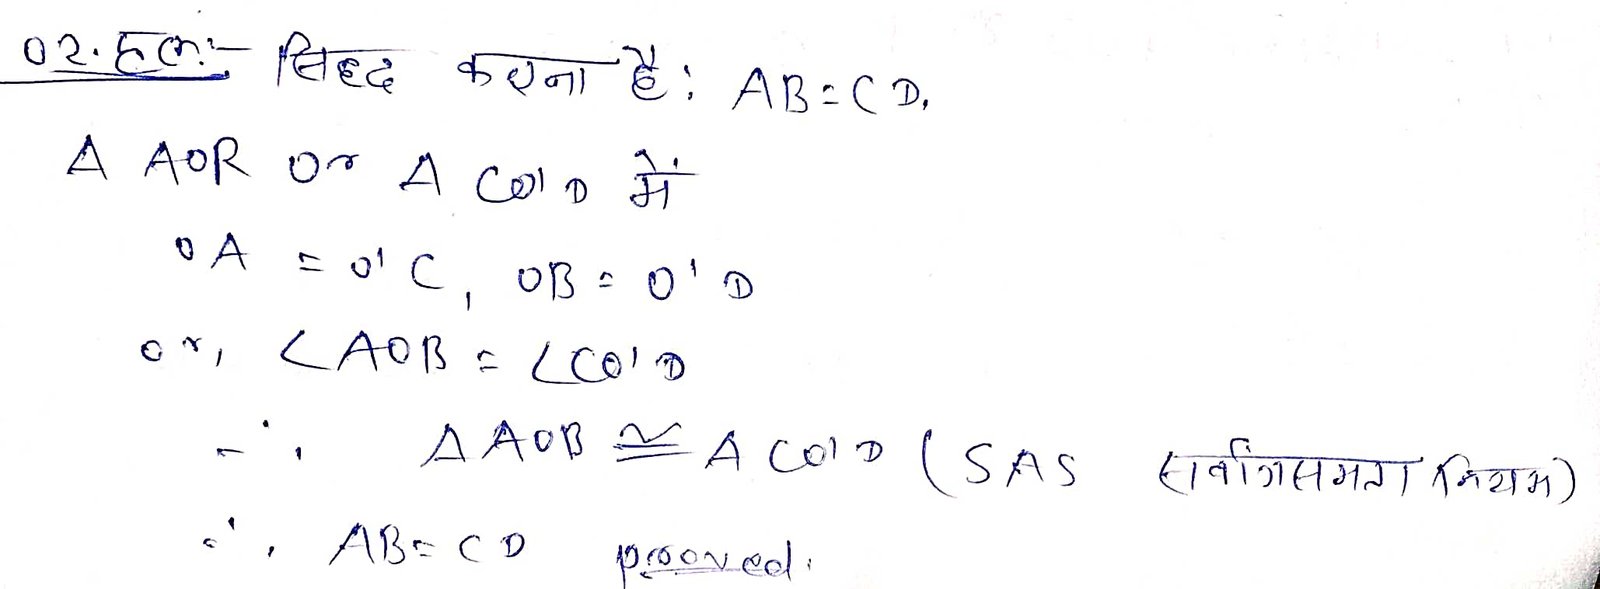 02. हल:- सिद्द करना है: AB=CD.
Δ AOR or Δ CO'D में
OA = O'C, OB = O'D
or, ∠AOB = ∠CO'D
∴ ΔAOB ≅ Δ CO'D (SAS सर्वांगसमता नियम)
∴ AB = CD prooved.